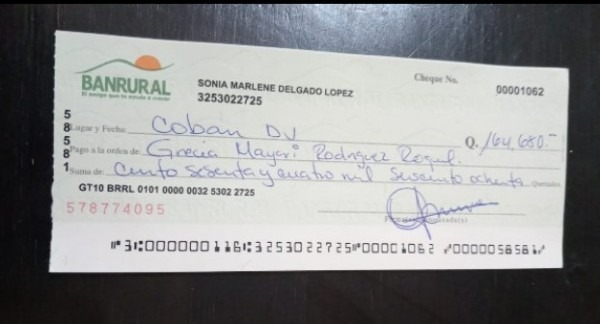 BANRURAL
El amigo que te ayuda a crecer
SONIA MARLENE DELGADO LOPEZ
3253022725
Cheque No.
00001062
58581
Lugar y Fecha: Coban DV
Q. 164,680.-
Pago a la orden de: Grecia Mayari Rodriguez Roquel.
Suma de: Ciento sesenta y cuatro mil seiscientos ochenta Quetzales
GT10 BRRL 0101 0000 0032 5302 2725
578774095
⑈3⑆000000116⑆3253022725⑈00001062 ⑇0000058581⑇